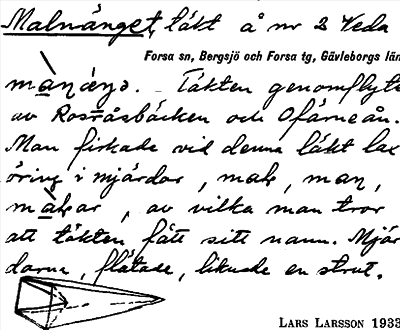 Malnänget, täkt å nr 2 Veda
Forsa sn, Bergsjö och Forsa tg, Gävleborgs län
Täkten genomflyte
av Rosråsbäcken och Ofärneån.
Man fiskade vid denna täkt lax
öring i mjärdar, man,
av vilka man tror
att täkten fått sitt namn. Mjär
darna, flätade, liknade en strut.
LARS LARSSON 1933